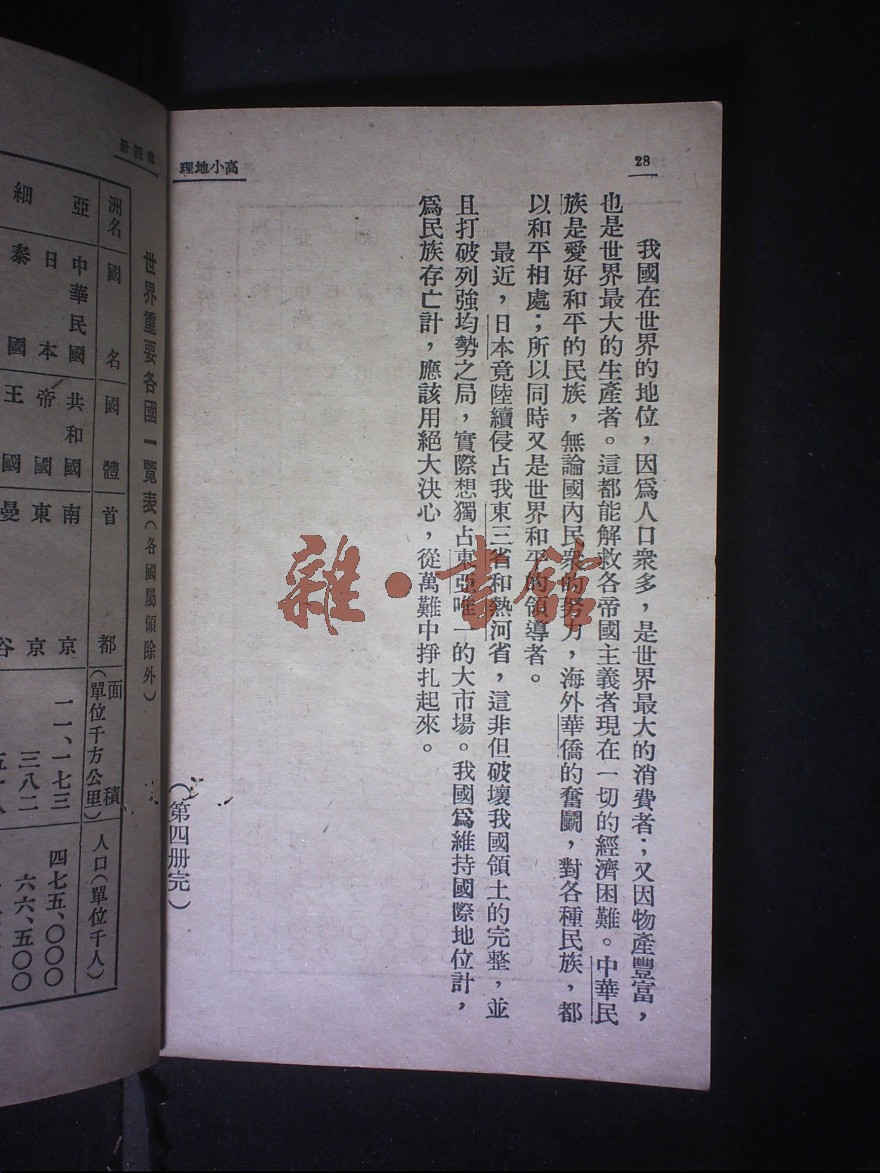 28
高小地理
我國在世界的地位，因爲人口衆多，是世界最大的消費者；又因物產豐富，
也是世界最大的生產者。這都能解救各帝國主義者現在一切的經濟困難。中華民
族是愛好和平的民族，無論國內民衆的努力，海外華僑的奮鬭，對各種民族，都
以和平相處；所以同時又是世界和平的領導者。
最近，日本竟陸續侵占我東三省和熱河省，這非但破壞我國領土的完整，並
且打破列強均勢之局，實際想獨占東亞唯一的大市場。我國爲維持國際地位計，
爲民族存亡計，應該用絕大決心，從萬難中掙扎起來。
（第四册完）
雜·書館
第四册
世界重要各國一覽表（各國屬領除外）
洲名 國名 國體 首都 面積（單位千方公里） 人口（單位千人）
亞 中華民國 共和國 南京 一一、一七三 四七五、〇〇〇
日本 帝國 東京 三八二 六六、五〇〇
細 秦國 王國 曼谷